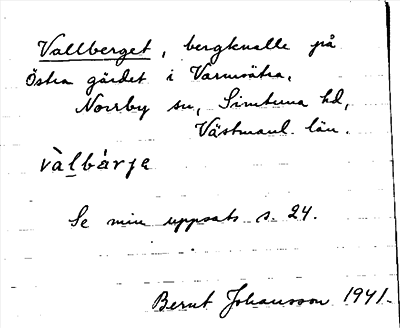 Vallberget, bergknalle på
Östra gärdet i Varmsätra,
Norrby sn, Simtuna hd,
Västmanl. län.
vàlbárja
Se min uppsats s. 24.
Bernt Johansson 1941.